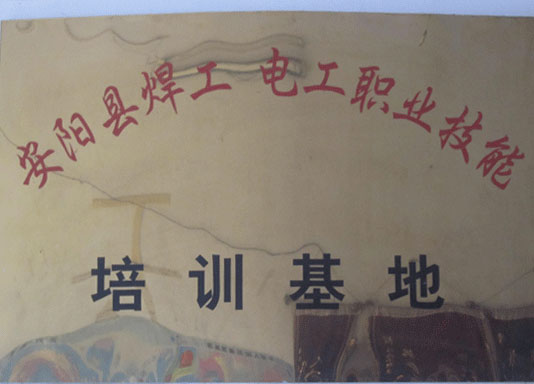 安阳县焊工 电工职业技能
培训基地